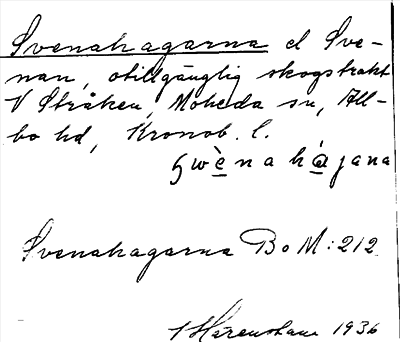 Svenahagarna el Sve-
nan, otillgänglig skogstrakt
V Stråken, Moheda sn, All-
bo hd, Kronob. l.
swè̲na há̲jana
Svenahagarna BoM: 212
1936